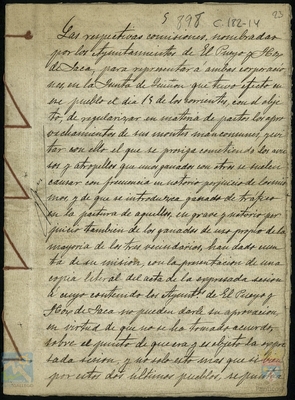 5 898 C182-14
23
Las respectivas comisiones, nombradas
por los Ayuntamientos de El Pueyo y Hoz
de Jaca, para representar á ambas corporacio-
nes en la Junta de Quiñon que tuvo efecto en
ese pueblo el dia 15 de los corrientes, con el obje-
to, de regularizar en materia de pastos los apro-
vechamientos de sus montes mancomunes, y evi-
tar con ello el que se prosiga cometiendo los
y atropellos que unos ganados con otros se suelen
causar con frecuencia en notorio perjuicio de los mis-
mos, y de que se introduzca ganado de trafico
en la pastura de aquellos, en grave y notorio per-
juicio tambien de los ganados de uso propio de la
mayoria de los tres vecindarios, han dado cuen-
ta de su mision, con la presentacion de una
copia literal del acta de la expresada sesion
á cuyo contenido los Ayuntos de El Pueyo y
Hoz de Jaca no pueden darle su aprovacion
en virtud de que no se ha tomado acuerdo
sobre el punto de que era objeto la expre-
sada sesion, y no solo esto mas que
por estos dos ultimos pueblos, se